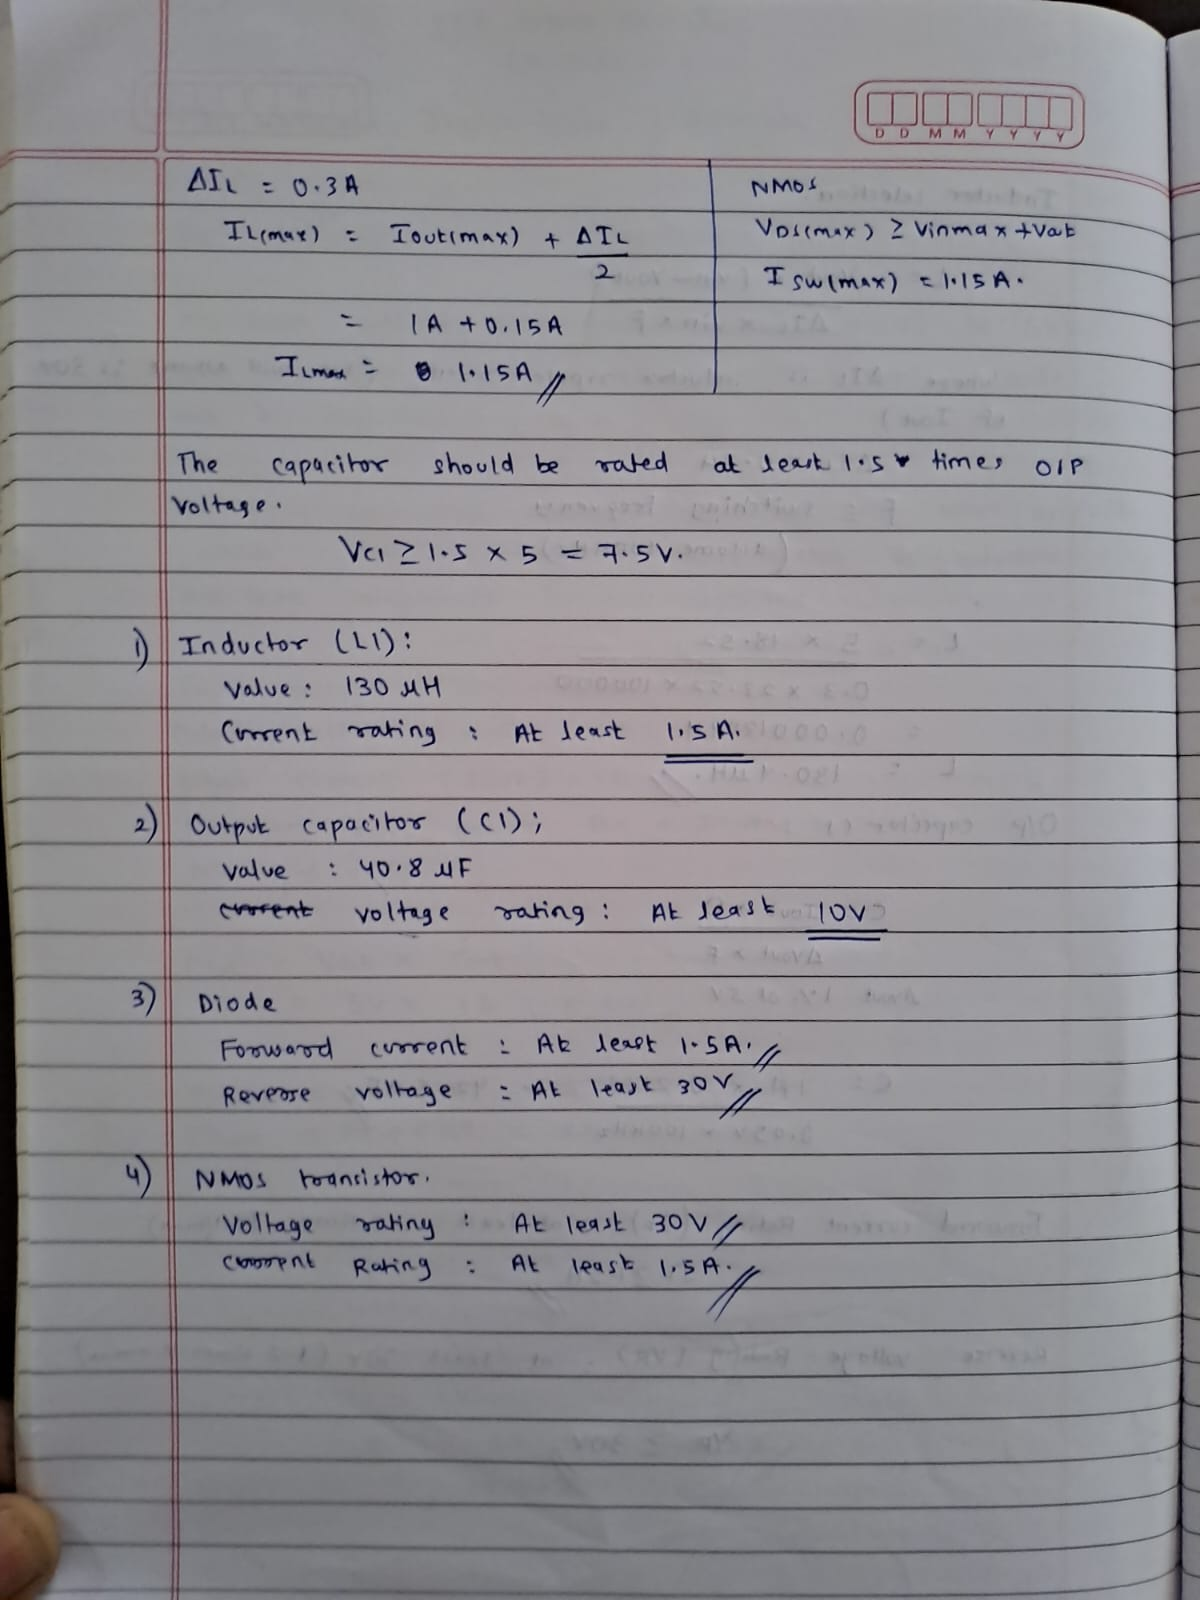 D D M M Y Y Y Y
ΔIL = 0.3A
IL(max) = Iout(max) + ΔIL
2
= 1A + 0.15A
ILmax = 1.15A
NMOS
VDS(max) ≥ Vinmax + Vout
I sw(max) = 1.15A.
The capacitor should be rated at least 1.5 times O/P
voltage.
VC1 ≥ 1.5 × 5 = 7.5V.
1) Inductor (L1):
Value : 130 μH
Current rating : At least 1.5A.
2) Output capacitor (C1);
Value : 40.8 μF
current voltage rating : At least 10V
3) Diode
Forward current : At least 1.5A.
Reverse voltage : At least 30V
4) NMOS transistor.
Voltage rating : At least 30V
Current Rating : At least 1.5A.